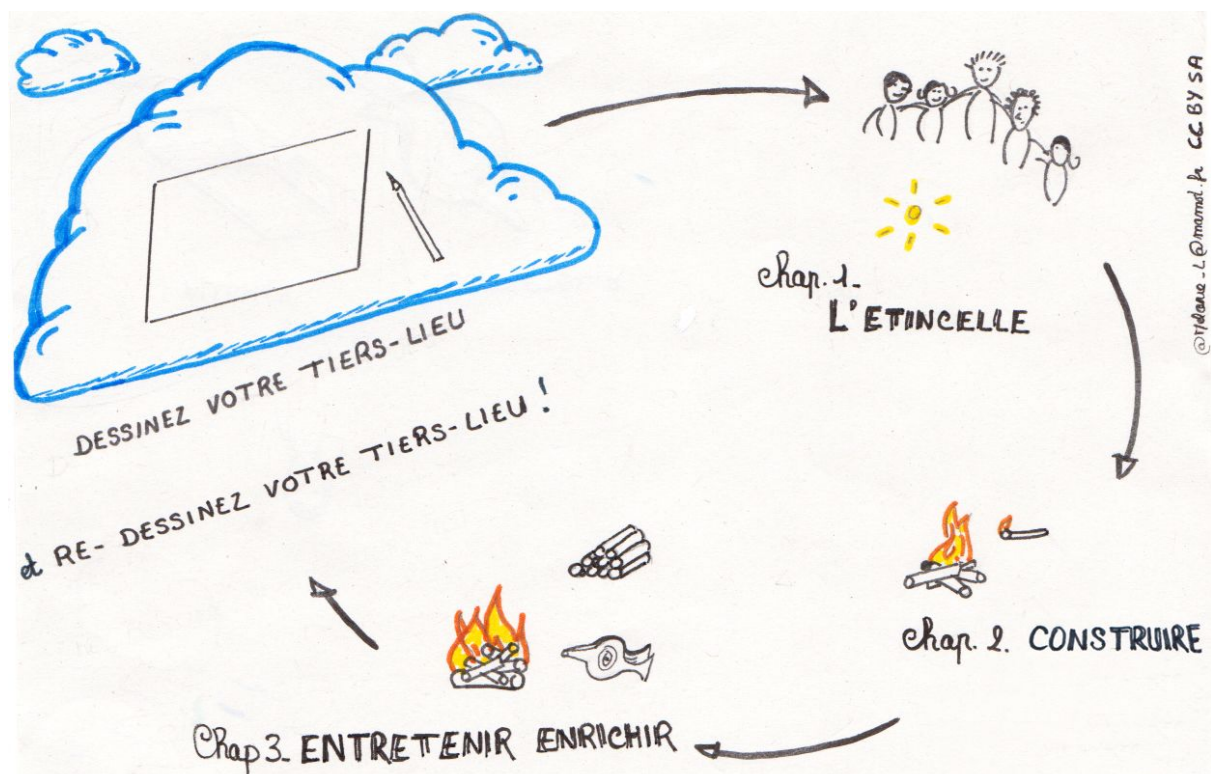 DESSINEZ VOTRE TIERS-LIEU
et RE-DESSINEZ VOTRE TIERS-LIEU !
Chap. 1-
L'ETINCELLE
Chap. 2. CONSTRUIRE
Chap 3- ENTRETENIR ENRICHIR
CC BY SA